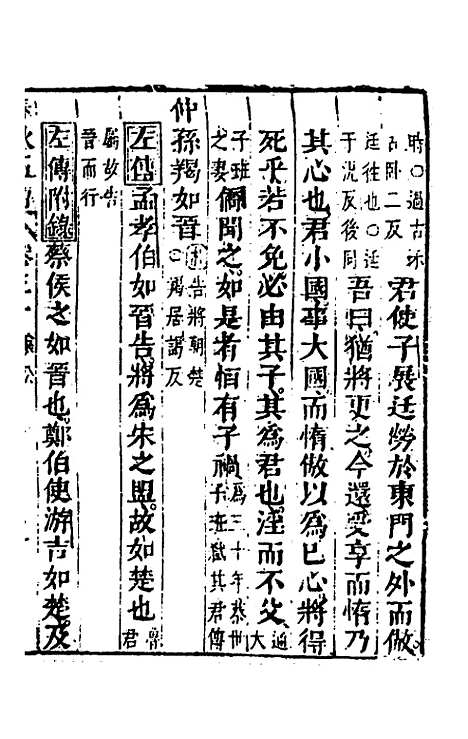 時○過古禾古卧二反 君使子展廷勞於東門之外而傲
廷往也○廷于況反後同 吾曰猶將更之今還受享而惰乃
其心也君小國事大國而惰傲以爲已心將得
死乎若不免必由其子其爲君也淫而不父通大
子班之妻 僑聞之如是者恒有子禍爲三十年蔡世子班弑其君傳
仲孫羯如晉告將朝楚○羯居謁反
左傳孟孝伯如晉告將爲宋之盟故如楚也魯君
屬故告晉而行
左傳附錄蔡侯之如晉也鄭伯使游吉如楚及